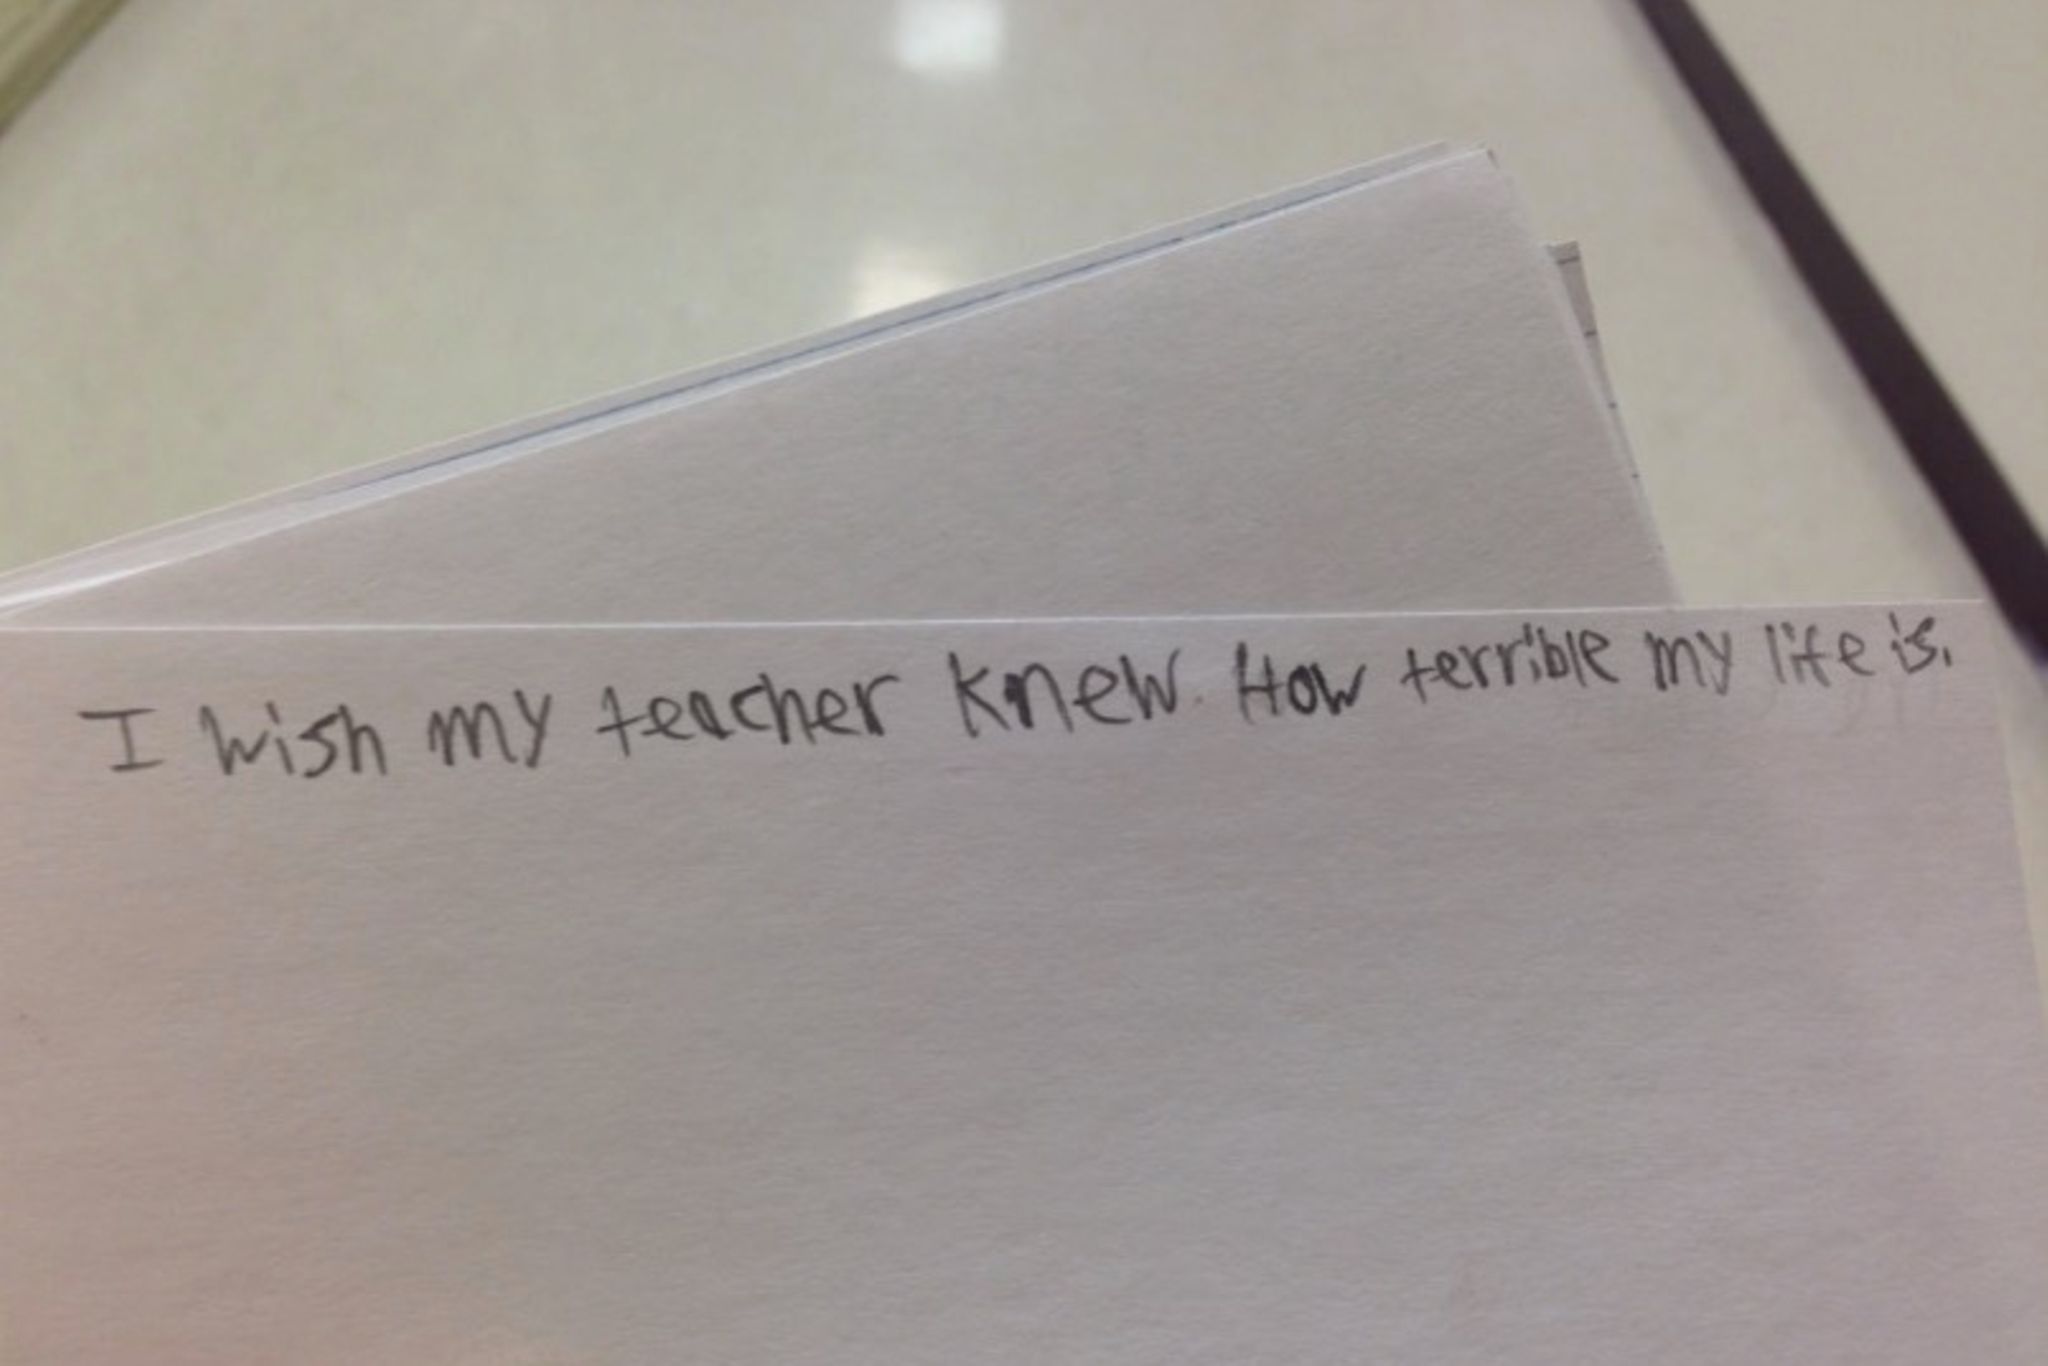 I wish my teacher knew. How terrible my life is.